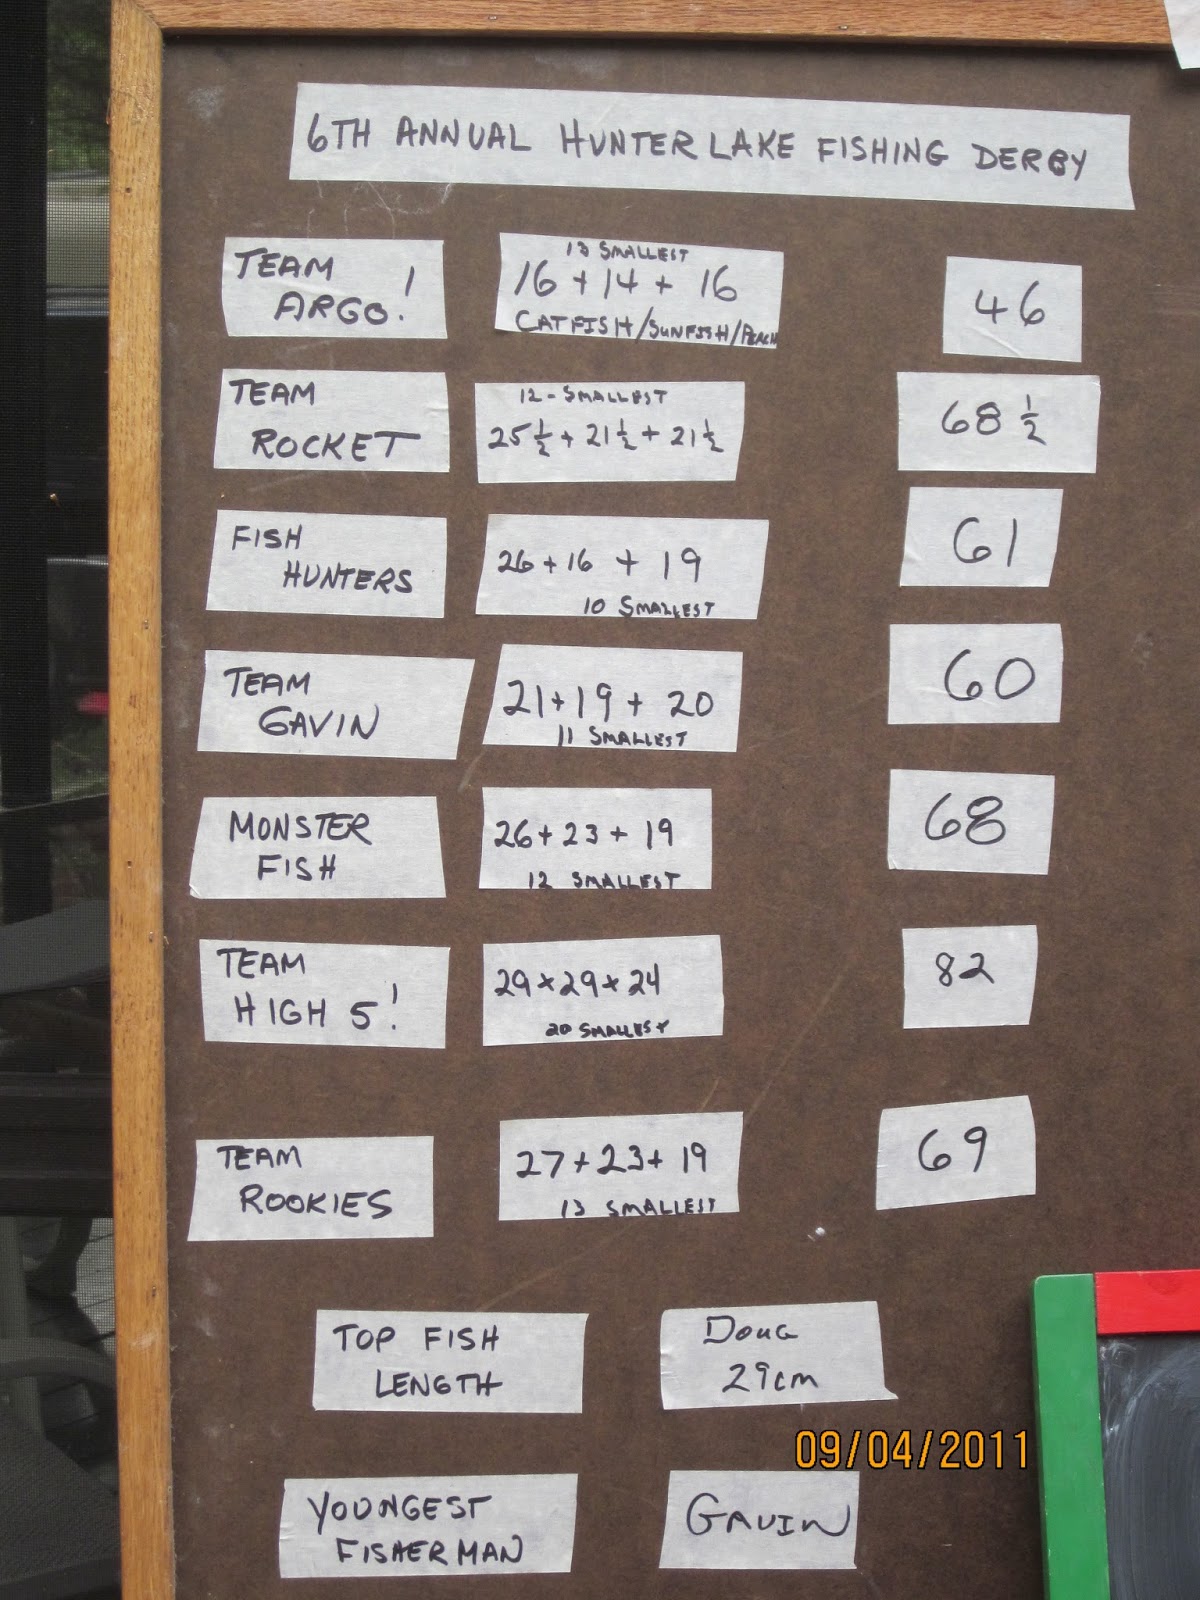 6TH ANNUAL HUNTER LAKE FISHING DERBY
TEAM
ARGO!
13 SMALLEST
16 + 14 + 16
CATFISH/SUNFISH/PERCH
46
TEAM
ROCKET
12 - SMALLEST
25 ½ + 21 ½ + 21 ½
68 ½
FISH
HUNTERS
26 + 16 + 19
10 SMALLEST
61
TEAM
GAVIN
21 + 19 + 20
11 SMALLEST
60
MONSTER
FISH
26 + 23 + 19
12 SMALLEST
68
TEAM
HIGH 5!
29 x 29 x 24
20 SMALLEST
82
TEAM
ROOKIES
27 + 23 + 19
13 SMALLEST
69
TOP FISH
LENGTH
DOUG
29cm
09/04/2011
YOUNGEST
FISHERMAN
GAVIN